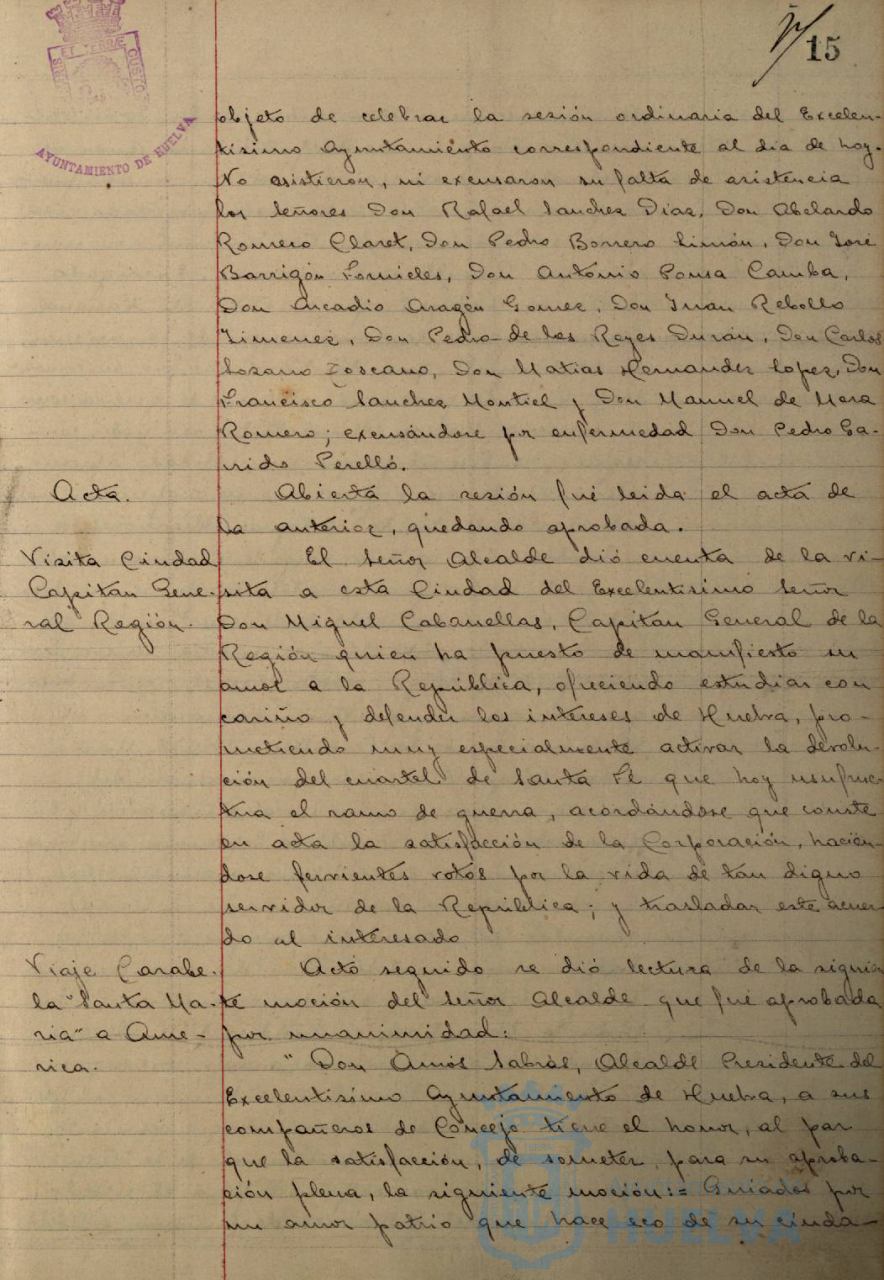 15
AYUNTAMIENTO DE HUELVA
objeto de celebrar la sesión ordinaria del Excelen-
tisimo Ayuntamiento correspondiente al dia de hoy.
No asistieron, ni excusaron su falta de asistencia
los señores Don Rafael Sanchez Diaz, Don Abelardo
Romero Claret, Don Pedro Borrero Limón, Don José
Barrigón Fornieles, Don António Ponsa Camba,
Don Arcadio Aragón Gomez, Don Juan Rebollo
Jimenez, Don Pedro de los Reyes Durán, Don Carlos
Lozano Toscano, Don Matias Hernandez Lopez, Don
Francisco Sanchez Montiel y Don Manuel de Mora
Romero; excusándose por enfermedad Don Pedro Ga-
rrido Perelló.
Acta.
Abierta la sesión fué leida el acta de
la anterior, quedando aprobada.
Visita Ciudad
Capitán Gene-
ral Región.
El Señor Alcalde dió cuenta de la vi-
sita a esta Ciudad del Excelentisimo Señor
Don Miguel Cabanellas, Capitán General de la
Región quien ha puesto de manifiesto su
amor a la República, ofreciendo estudiar con
cariño y defender los intereses de Huelva, pro-
metiendo muy especialmente activar la devolu-
ción del cuartel de Santa Fé que hoy usufruc-
túa el ramo de guerra, acordándose que conste
en acta la satisfacción de la Corporación, hacién-
dose fervientes votos por la vida de tan digno
servidor de la República; y trasladar este acuer-
do al interesado
Viaje Carabe-
la "Santa Ma-
ria" a Ame-
rica.
Acto seguido se dió lectura de la siguien
te moción del Señor Alcalde que fué aprobada
por unanimidad:
"Don Amós Sabrás, Alcalde Presidente del
Excelentisimo Ayuntamiento de Huelva, a sus
compañeros de Concejo tiene el honor, al par
que la satisfacción, de someter para su aproba-
ción plena, la siguiente moción:= Guiados por
un amor patrio que hace eco de su ciuda-
HUELVA